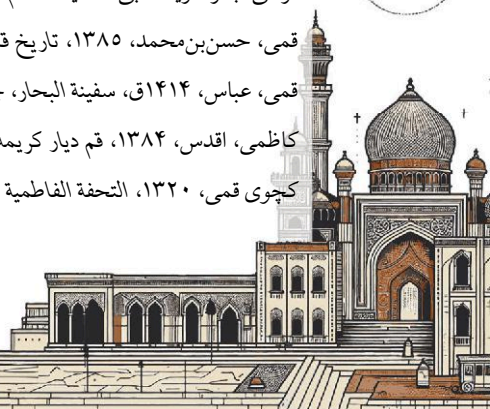 قمی، حسن‌بن‌محمد، ۱۳۸۵، تاریخ
قمی، عباس، ۱۴۱۴ق، سفینة البحار،
کاظمی، اقدس، ۱۳۸۴، قم دیار کریمه
کچوی قمی، ۱۳۲۰، التحفة الفاطمیة